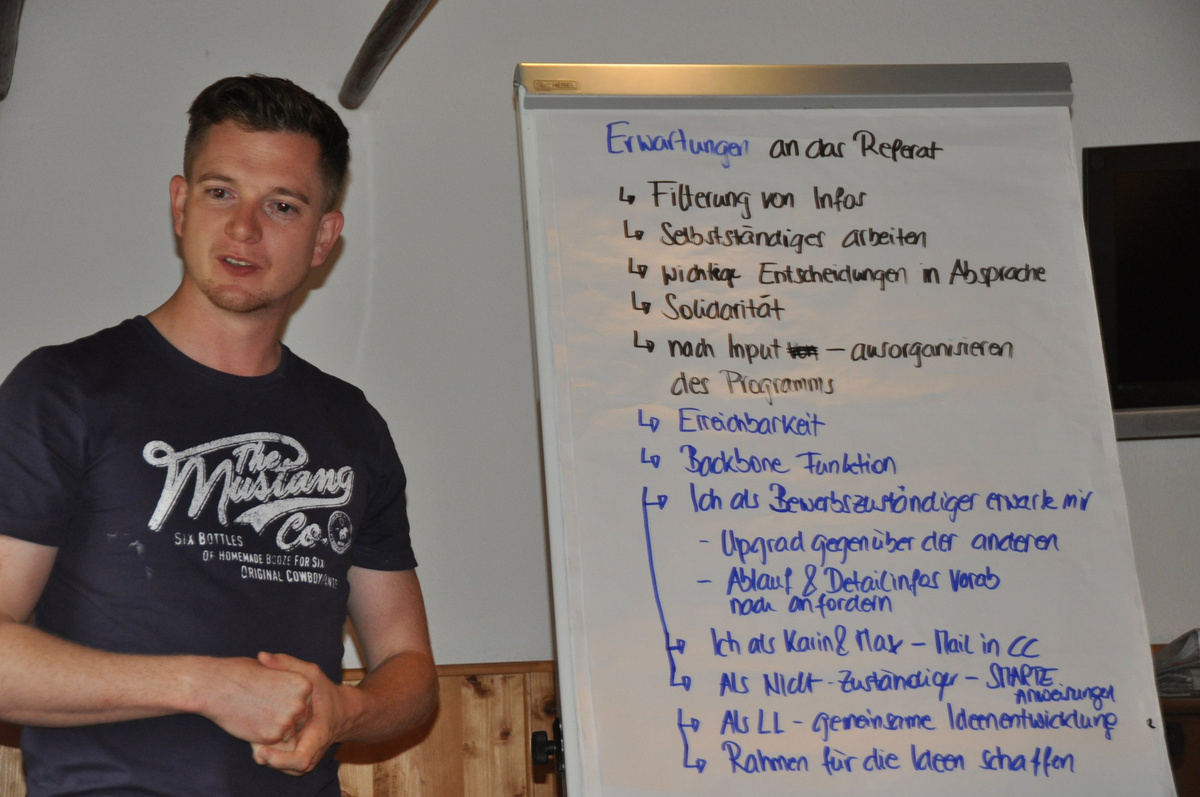 Erwartungen an das Referat
↳ Filterung von Infos
↳ Selbstständiger arbeiten
↳ wichtige Entscheidungen in Absprache
↳ Solidarität
↳ nach Input – ausorganisieren
des Programms
↳ Erreichbarkeit
↳ Backbone Funktion
↳ Ich als Bewerbszuständiger erwarte mir
- Upgrad gegenüber der anderen
- Ablauf & Detailinfos vorab
nach anfordern
↳ Ich als Karin & Max – Mail in CC
↳ Als Nicht-Zuständiger – SMARTE
Anweisungen
↳ Als LL – gemeinsame Ideenentwicklung
↳ Rahmen für die Ideen schaffen
The
Mustang
Co.
SIX BOTTLES
OF HOMEMADE BOOZE FOR SIX
ORIGINAL